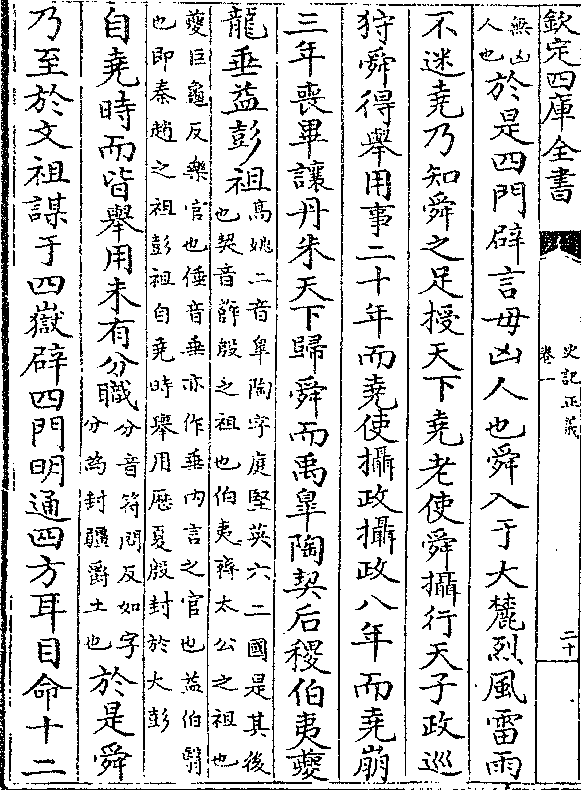 欽定四庫全書
史記正義
卷一
二十
無凶
人也
於是四門辟言毋凶人也舜入于大麓烈風雷雨
不迷堯乃知舜之足授天下堯老使舜攝行天子政巡
狩舜得舉用事二十年而堯使攝政攝政八年而堯崩
三年喪畢讓丹朱天下歸舜而禹臯陶契后稷伯夷夔
龍垂益彭祖
高姚二音臯陶字庭堅英六二國是其後
也契音薛殷之祖也伯夷齊太公之祖也
夔巨龜反樂官也倕音垂亦作垂内言之官也益伯翳
也即秦趙之祖彭祖自堯時舉用歴夏殷封於大彭
自堯時而皆舉用未有分職
分音符問反如字
分為封疆爵土也
於是舜
乃至於文祖謀于四嶽辟四門明通四方耳目命十二